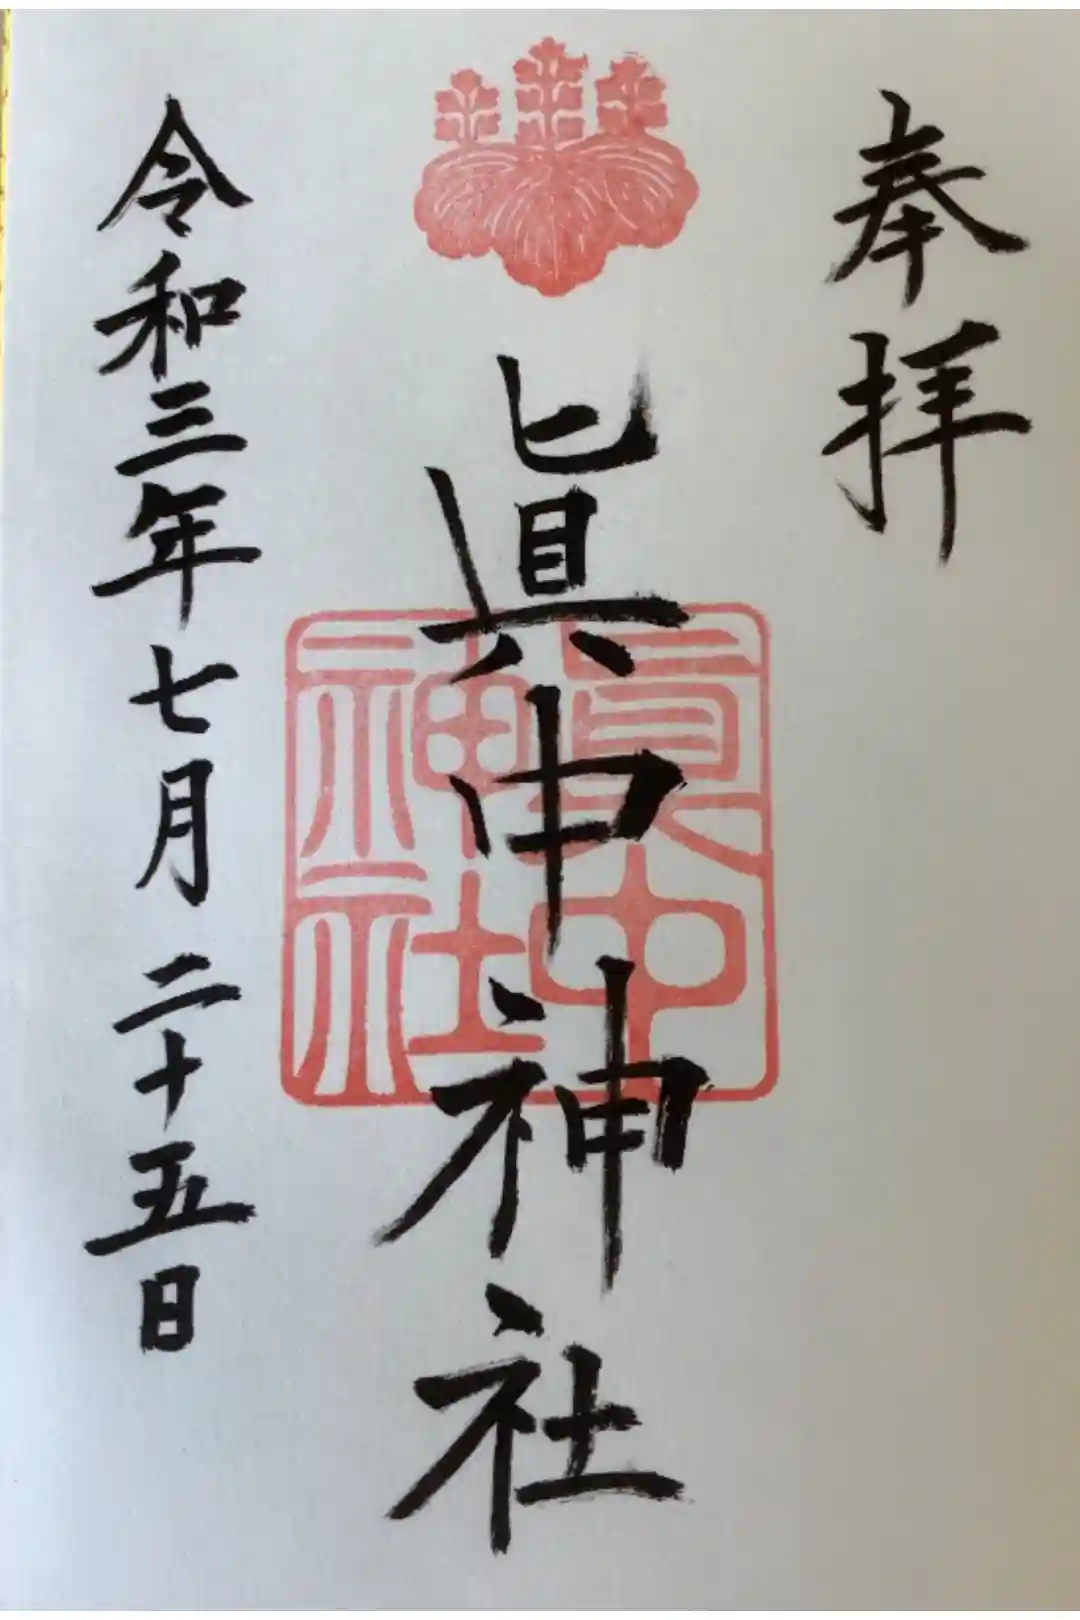 奉拝
眞中神社
眞中
神社
令和三年七月二十五日